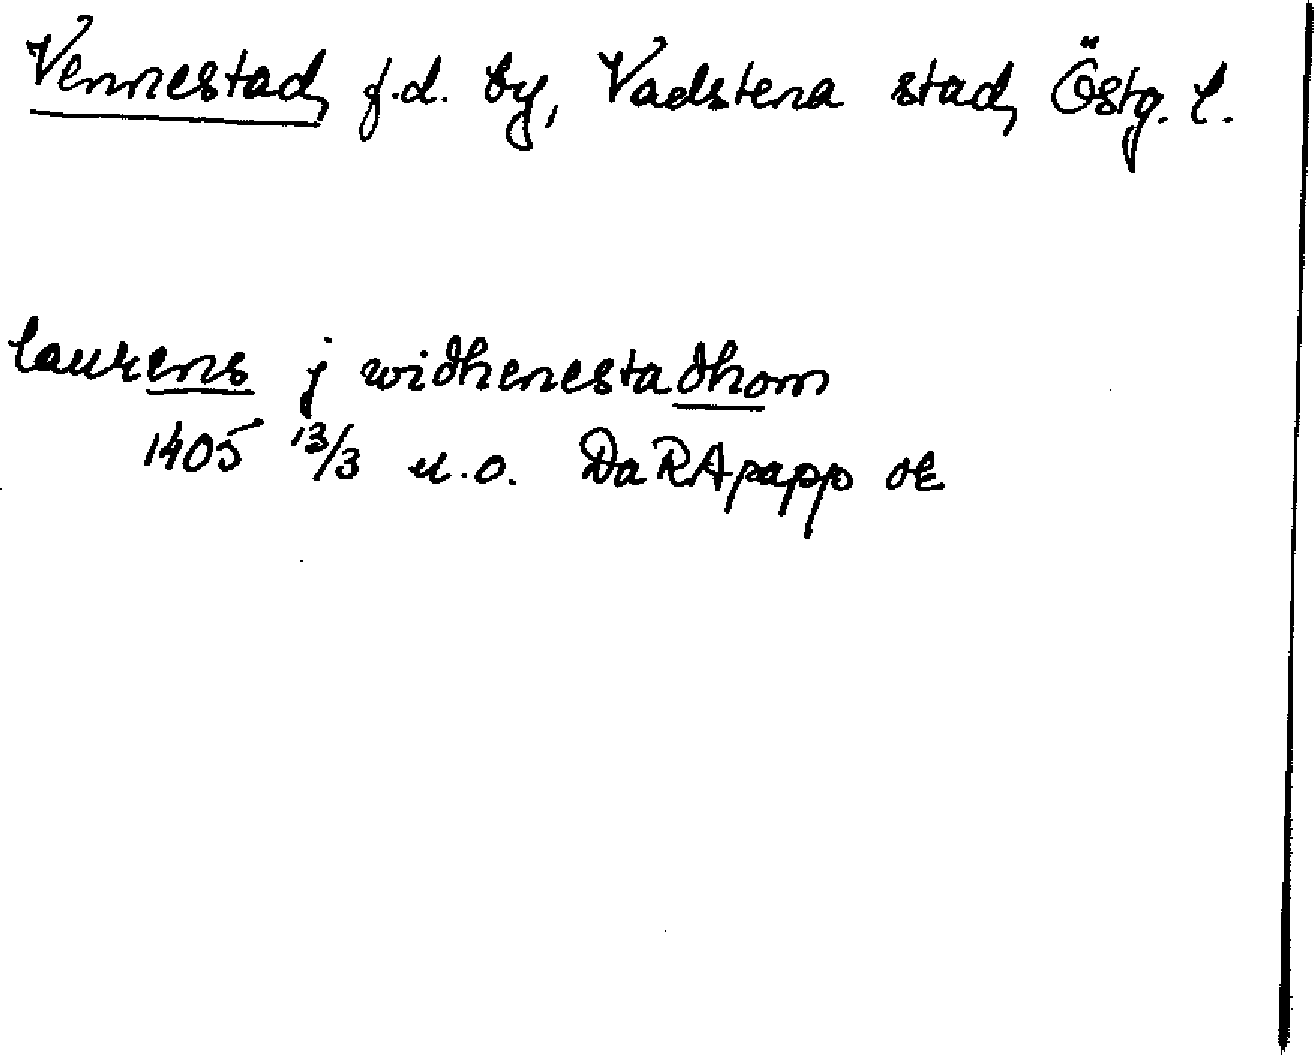 Vennestad, f.d. by, Vadstena stad, Östg. l.
laurens j widhenestadhom
1405 13/3 u.o. DaRApapp or